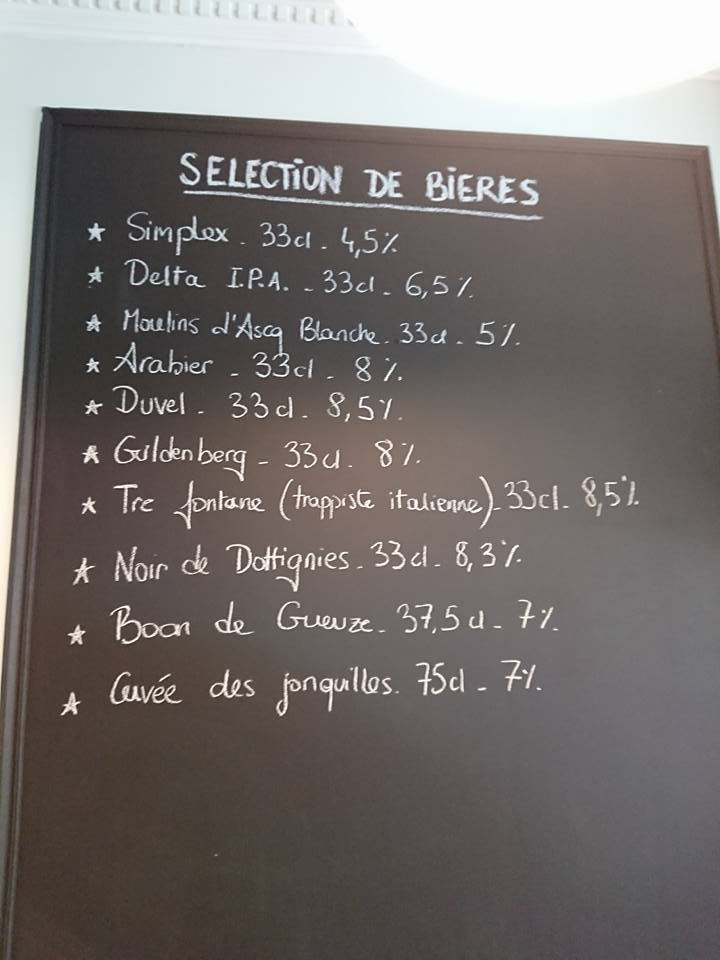 SELECTION DE BIERES
★ Simplex. 33cl. 4,5%
★ Delta I.P.A. - 33cl - 6,5%
★ Moulins d'Ascq Blanche. 33cl - 5%
★ Arabier - 33cl - 8%
★ Duvel - 33cl. 8,5%
★ Guldenberg - 33cl. 8%
★ Tre fontane (trappiste italienne) - 33cl - 8,5%
★ Noir de Dottignies - 33cl - 8,3%
★ Boon de Gueuze - 37,5cl - 7%
★ Cuvée des jonquilles. 75cl - 7%